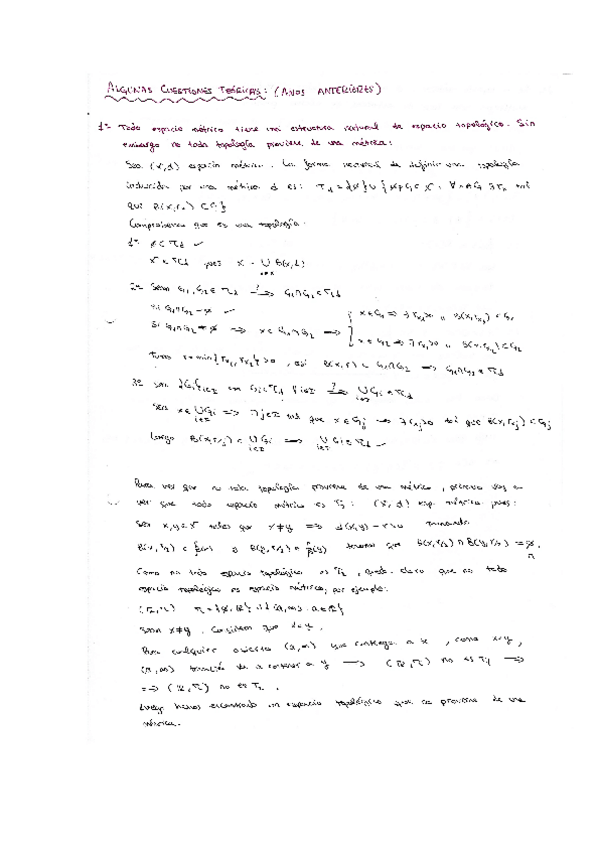 ALGUNAS CUESTIONES TEÓRICAS: (AÑOS ANTERIORES)
1º Todo espacio métrico tiene una estructura natural de espacio topológico. Sin
embargo no toda topología proviene de una métrica:
Sea (X,d) espacio métrico. La forma de definir una topología
inducida por una métrica d es: τd = {∅} ∪ {
que B(x,rx) ⊂ G}
Comprobemos que es una topología.
1º ∅ ∈ τd ✓
X ∈ τd pues X = ∪ B(x,1)
2º Sean G1, G2 ∈ τd ⟹ G1∩G2 ∈ τd
Si G1∩G2 = ∅ ✓
Si G1∩G2 ≠ ∅ ⟹ x ∈ G1∩G2 ⟹
Tomo r = min{rx1, rx2} > 0, así B(x,r) ⊂ G1∩G2 ⟹ G1∩G2 ∈ τd
3º Sean {Gi}i∈I con Gi ∈ τd ∀i∈I ⟹ ∪Gi ∈ τd
Sea x ∈ ∪Gi ⟹ ∃j∈I tal que x ∈ Gj ⟹ ∃rxj>0 tal que B(x,rxj) ⊂ Gj
Luego B(x,rxj) ⊂ ∪Gi ⟹ ∪Gi ∈ τd ✓
Para ver que no toda topología proviene de una métrica, primero voy a
ver que todo espacio métrico es T2: (X,d) esp. métrico pues:
Sean x,y ∈ X tales que x≠y ⟹ d(x,y) = r>0 tomando
tenemos que B(x,r/2) ∩ B(y,r/2) = ∅.
Como no todo espacio topológico es T2, queda claro que no todo
espacio topológico es espacio métrico, por ejemplo:
(R,τ) τ = {∅,R} ∪ {(a,∞): a∈R}
Sean x≠y.
Para cualquier abierto (a,∞) que contenga a x, como x<y,
(a,∞) también va a contener a y ⟹ (R,τ) no es T1 ⟹
⟹ (R,τ) no es T2.
Luego hemos encontrado un espacio topológico que no proviene de una
métrica.